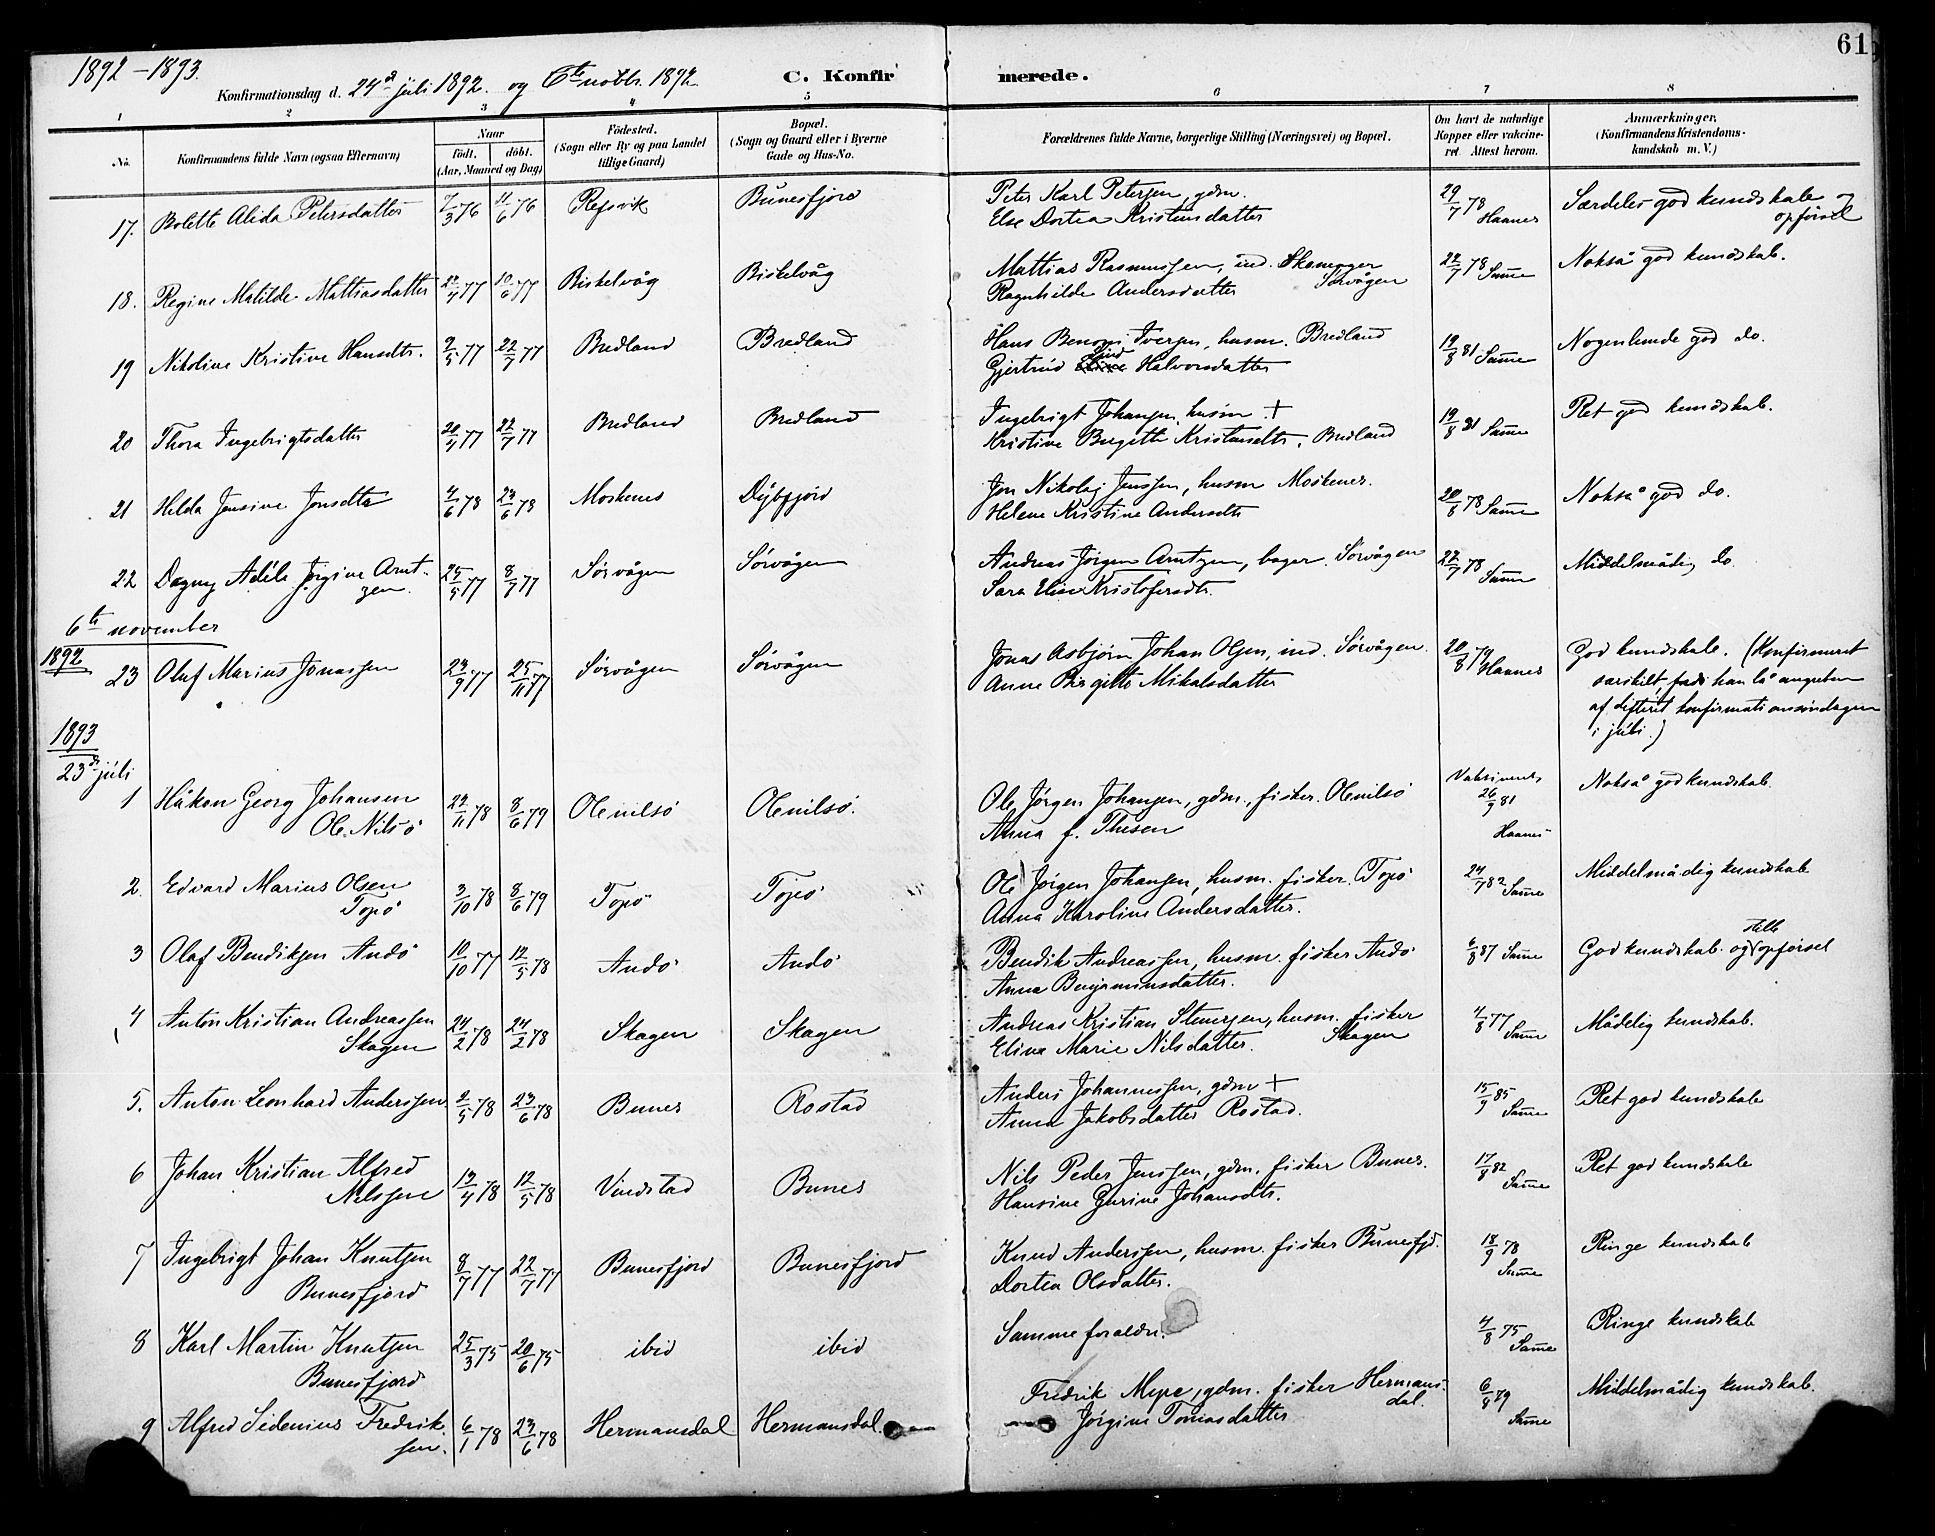 61
1892 – 1893.
Konfirmationsdag d. 24d juli 1892. og 6te novbr. 1892.
C. Konfirmerede.
1 2 3 4 5 6 7 8
No.
Konfirmandens fulde Navn (ogsaa Efternavn)
Naar
födt. döbt.
(Aar, Maaned og Dag)
Födested.
(Sogn eller By og paa Landet
tillige Gaard)
Bopæl.
(Sogn og Gaard eller i Byerne
Gade og Hus-No.
Forældrenes fulde Navne, borgerlige Stilling (Næringsvei) og Bopæl.
Om havt de naturlige
Kopper eller vakcine-
ret Attest herom.
Anmærkninger.
(Konfirmandens Kristendoms-
kundskab m. V.)
17. Bolette Alida Petersdatter 7/3 76 11/6 76 Refsvik Bunesfjord Peter Karl Petersen, gdm. 29/7 78 Haanes Særdeles god kundskab og
Else Dortea Kristiansdatter opførsel
18. Regine Matilde Mattiasdatter 10/6 77 Biskelvåg Biskelvåg Mattias Rasmussen, ind. 22/7 78 Samme Nokså god kundskab.
Ragnhilde Andersdatter Sørvågen
19 Nikoline Kristine Hansdtr. 9/5 77 22/7 77 Bredland Bredland Hans Benoni Iversen, husm. Bredland 19/8 81 Samme Nogenlunde god do.
Gjertrud Halvorsdatter
20 Thora Ingebrigtsdatter 20/4 77 22/7 77 Bredland Bredland Ingebrigt Johansen, husm + 19/8 81 Samme Ret god kundskab.
Kristine Birgitte Kristensdtr. Bredland
21 Helda Jensine Jonsdtr 4/6 78 23/6 78 Moskenes Dybfjord Jon Nikolaj Jenssen, husm Moskenes. 20/8 78 Samme Nokså god do.
Helene Kristine Andersdtr
22 Dagny Adele Jørgine Arnt- 25/5 77 8/7 77 Sørvågen Sørvågen Andreas Jørgen Arntzen, bager. Sørvågen 22/7 78 Samme Middelmådig do.
zen. Sara Elise Kristofersdtr.
6te november
1892
23 Olaf Marius Jonassen 23/9 77 25/11 77 Sørvågen Sørvågen Jonas Asbjørn Johan Olsen, ind. Sørvågen. 20/8 79 Haanes God kundskab. (Konfirmeret
Anne Birgitte Mikalsdatter særskilt, fordi han lå angreben
af difterit konfirmationsøndagen
i juli.)
1893
23de juli
1 Håkon Georg Johansen 22/11 78 8/6 79 Olenilsø Olenilsø. Ole Jørgen Johansen, gdm. fisker. Olenilsø Vaksineret, 26/9 81 Haanes Nokså god kundskab.
Ole Nilsø Anna f. Thesen
2. Edvard Marius Olsen 3/10 78 8/6 79 Topø Topø Ole Jørgen Johansen, husm. fisker. Topø 24/7 82 Samme Middelmådig kundskab
Topø Anna Karoline Andersdatter.
3 Olaf Bendiksen Andø 10/10 77 12/5 78 Andø Andø Bendik Andreassen, husm. fisker Andø 6/8 87 Samme God kundskab og opførsel
Anna Benjaminsdatter.
4 Anton Kristian Andreassen 24/2 78 24/2 78 Skagen Skagen Andreas Kristian Steversen, husm. fisker 4/8 77 Samme Mådelig kundskab.
Skagen Eline Marie Nilsdatter. Skagen
5. Anton Leonhard Anderssen 2/5 78 23/6 78 Bunes Rostad Anders Johannessen, gdm + 15/9 85 Samme Ret god kundskab
Anna Jakobsdatter Rostad.
6 Johan Kristian Alfred 13/4 78 12/5 78 Vindstad Bunes Nils Peder Jenssen, gdm. fisker Bunes. 17/8 82 Samme Ret god kundskab
Nilssen Hansine Gurine Johansdtr.
7 Ingebrigt Johan Knutsen 8/7 77 22/7 77 Bunesfjord Bunesfjord Knud Anderssen, husm. fisker Bunesfjd. 18/9 78 Samme Ringe kundskab
Bunesfjord Dortea Olsdatter.
8 Karl Martin Knutsen 25/3 75 20/6 75 ibid ibid Samme forældre. 4/8 75 Samme Ringe kundskab
Bunesfjord
9 Alfred Sidenius Fredrik- 6/1 78 23/6 78 Hermansdal Hermansdal. Fredrik Mepe, gdm. fisker Hermans- 6/8 79 Samme Middelmådig kundskab.
sen. Jørgine Tomasdatter dal.